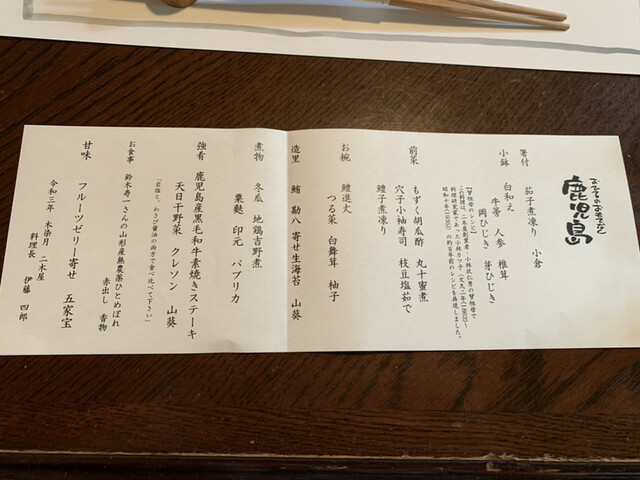 鹿児島
箸付
茄子煮凍り 小倉
小鉢
白和え
牛蒡 人参 椎茸
岡ひじき 芽ひじき
【曽祖母のレシピ】
この料理は、二木屋創業者・小林玖仁男の曽祖母で
料理研究家であった小林カツ子(文久二年(1862)〜
昭和十年(1935))の約百年前のレシピを再現しました。
前菜
もずく胡瓜酢 丸十蜜煮
穴子小袖寿司 枝豆塩茹で
鱧子煮凍り
お椀
鱧進丈
つる菜 白舞茸 柚子
造里 鮪 勘八 寄せ生海苔 山葵
煮物
冬瓜 地鶏吉野煮
粟麩 印元 パプリカ
強肴 鹿児島産黒毛和牛素焼きステーキ
天日干野菜 クレソン 山葵
「岩塩と、わさび醤油の両方で食べ比べて下さい」
お食事
鈴木寿一さんの山形産無農薬ひとめぼれ
赤出し 香物
甘味
フルーツゼリー寄せ 五家宝
令和三年 水無月 二木屋
料理長 伊藤 四郎